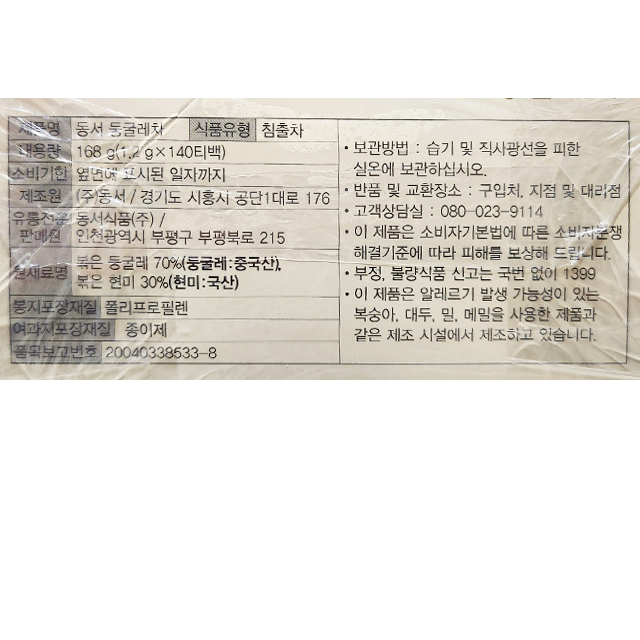 제품명 동서 둥굴레차 식품유형 침출차
내용량 168 g(1.2 g×140티백)
소비기한 옆면에 표시된 일자까지
제조원 (주)동서 / 경기도 시흥시 공단1대로 176
유통전문 동서식품(주) /
판매원 인천광역시 부평구 부평북로 215
원재료명 볶은 둥굴레 70%(둥굴레:중국산),
볶은 현미 30%(현미:국산)
봉지포장재질 폴리프로필렌
여과지포장재질 종이제
품목보고번호 20040338533-8
• 보관방법 : 습기 및 직사광선을 피한
실온에 보관하십시오.
• 반품 및 교환장소 : 구입처, 지점 및 대리점
• 고객상담실 : 080-023-9114
• 이 제품은 소비자기본법에 따른 소비자분쟁
해결기준에 따라 피해를 보상해 드립니다.
• 부정, 불량식품 신고는 국번 없이 1399
• 이 제품은 알레르기 발생 가능성이 있는
복숭아, 대두, 밀, 메밀을 사용한 제품과
같은 제조 시설에서 제조하고 있습니다.